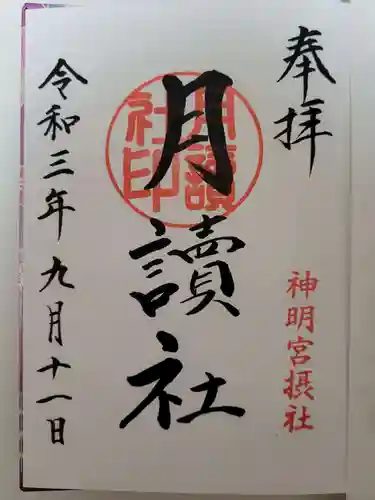 奉拝
神明宮摂社
月讀社
月讀社印
令和三年九月十一日